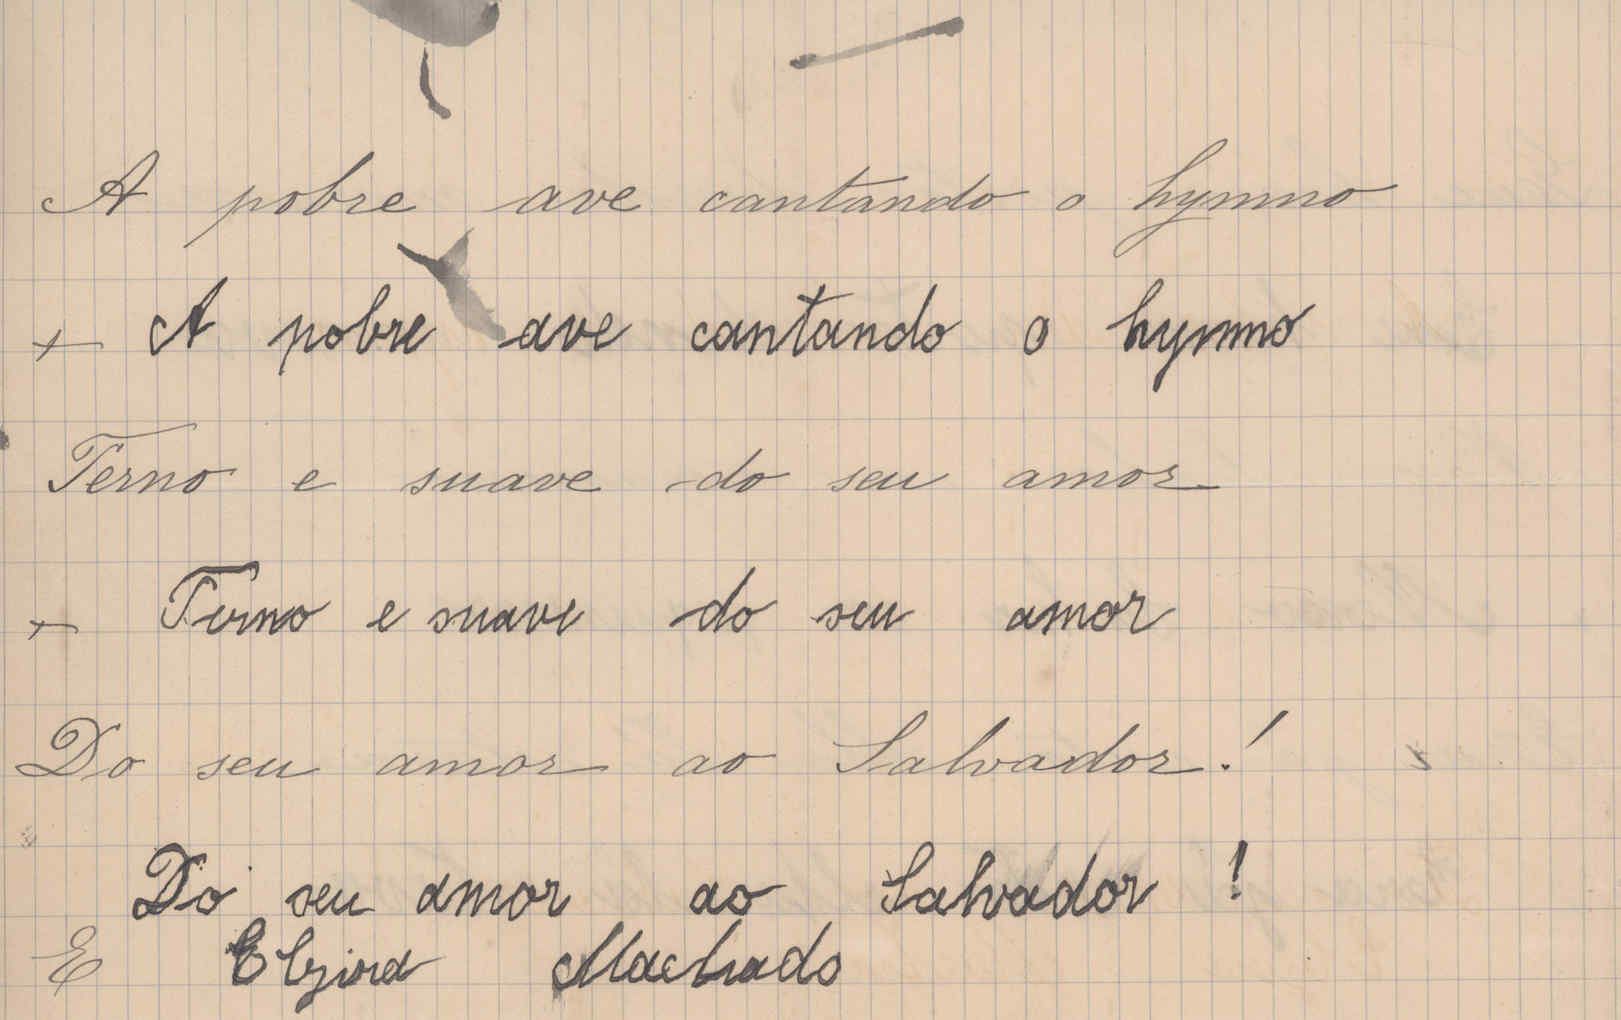 A pobre ave cantando o hymno
+ A pobre ave cantando o hymno
Terno e suave do seu amor
+ Terno e suave do seu amor
Do seu amor ao Salvador!
Do seu amor ao Salvador!
E Elzira Machado